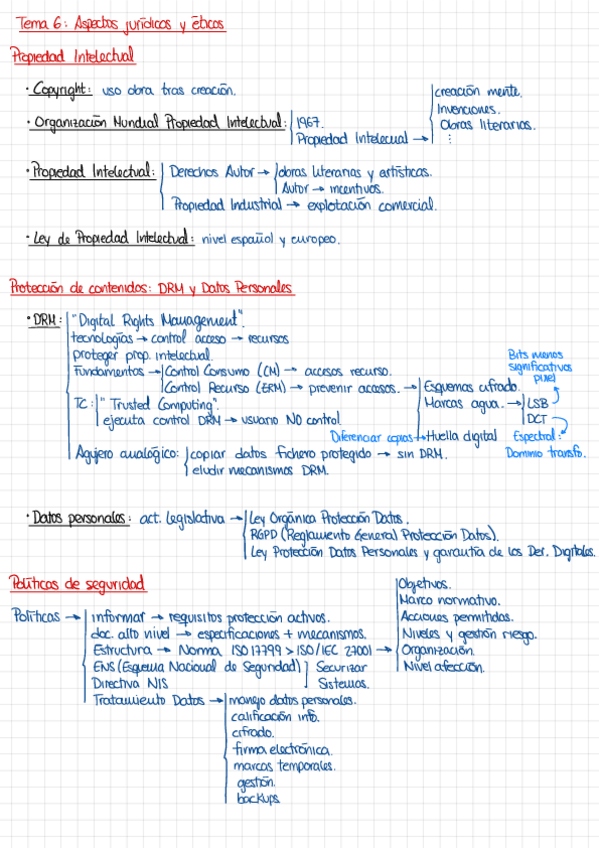 Tema 6: Aspectos jurídicos y éticos
Propiedad Intelectual
· Copyright: uso obra tras creación.
· Organización Mundial Propiedad Intelectual: 1967.
Propiedad Intelecual →
creación mente.
Invenciones.
Obras literarias.
⋮
· Propiedad Intelectual: Derechos Autor → obras literarias y artísticas.
Autor → incentivos.
Propiedad Industrial → explotación comercial.
· Ley de Propiedad Intelectual: nivel español y europeo.
Protección de contenidos: DRM y Datos Personales
· DRM: "Digital Rights Management".
tecnologías → control acceso → recursos
proteger prop. intelectual.
Fundamentos → Control Consumo (CM) → accesos recurso.
Control Recurso (ERM) → prevenir accesos. → Esquemas cifrado.
Marcas agua. → LSB
DCT
Huella digital
Bits menos
significativos
pixel
Diferenciar copias
Espectral:
Dominio transfo.
TC: "Trusted Computing".
ejecuta control DRM → usuario NO control
Agujero analógico: copiar datos fichero protegido → sin DRM.
eludir mecanismos DRM.
· Datos personales: act. legislativa → Ley Orgánica Protección Datos.
RGPD (Reglamento General Protección Datos).
Ley Protección Datos Personales y garantía de los Der. Digitales.
Políticas de seguridad
Políticas → informar → requisitos protección activos.
doc. alto nivel → especificaciones + mecanismos.
Estructura → Norma ISO 17799 > ISO/IEC 27001 →
Objetivos.
Marco normativo.
Acciones permitidas.
Niveles y gestión riesgo.
Organización.
Nivel afección.
ENS (Esquema Nacional de Seguridad)
Directiva NIS
Securizar
Sistemas.
Tratamiento Datos → manejo datos personales.
calificación info.
cifrado.
firma electrónica.
marcas temporales.
gestión.
backups.